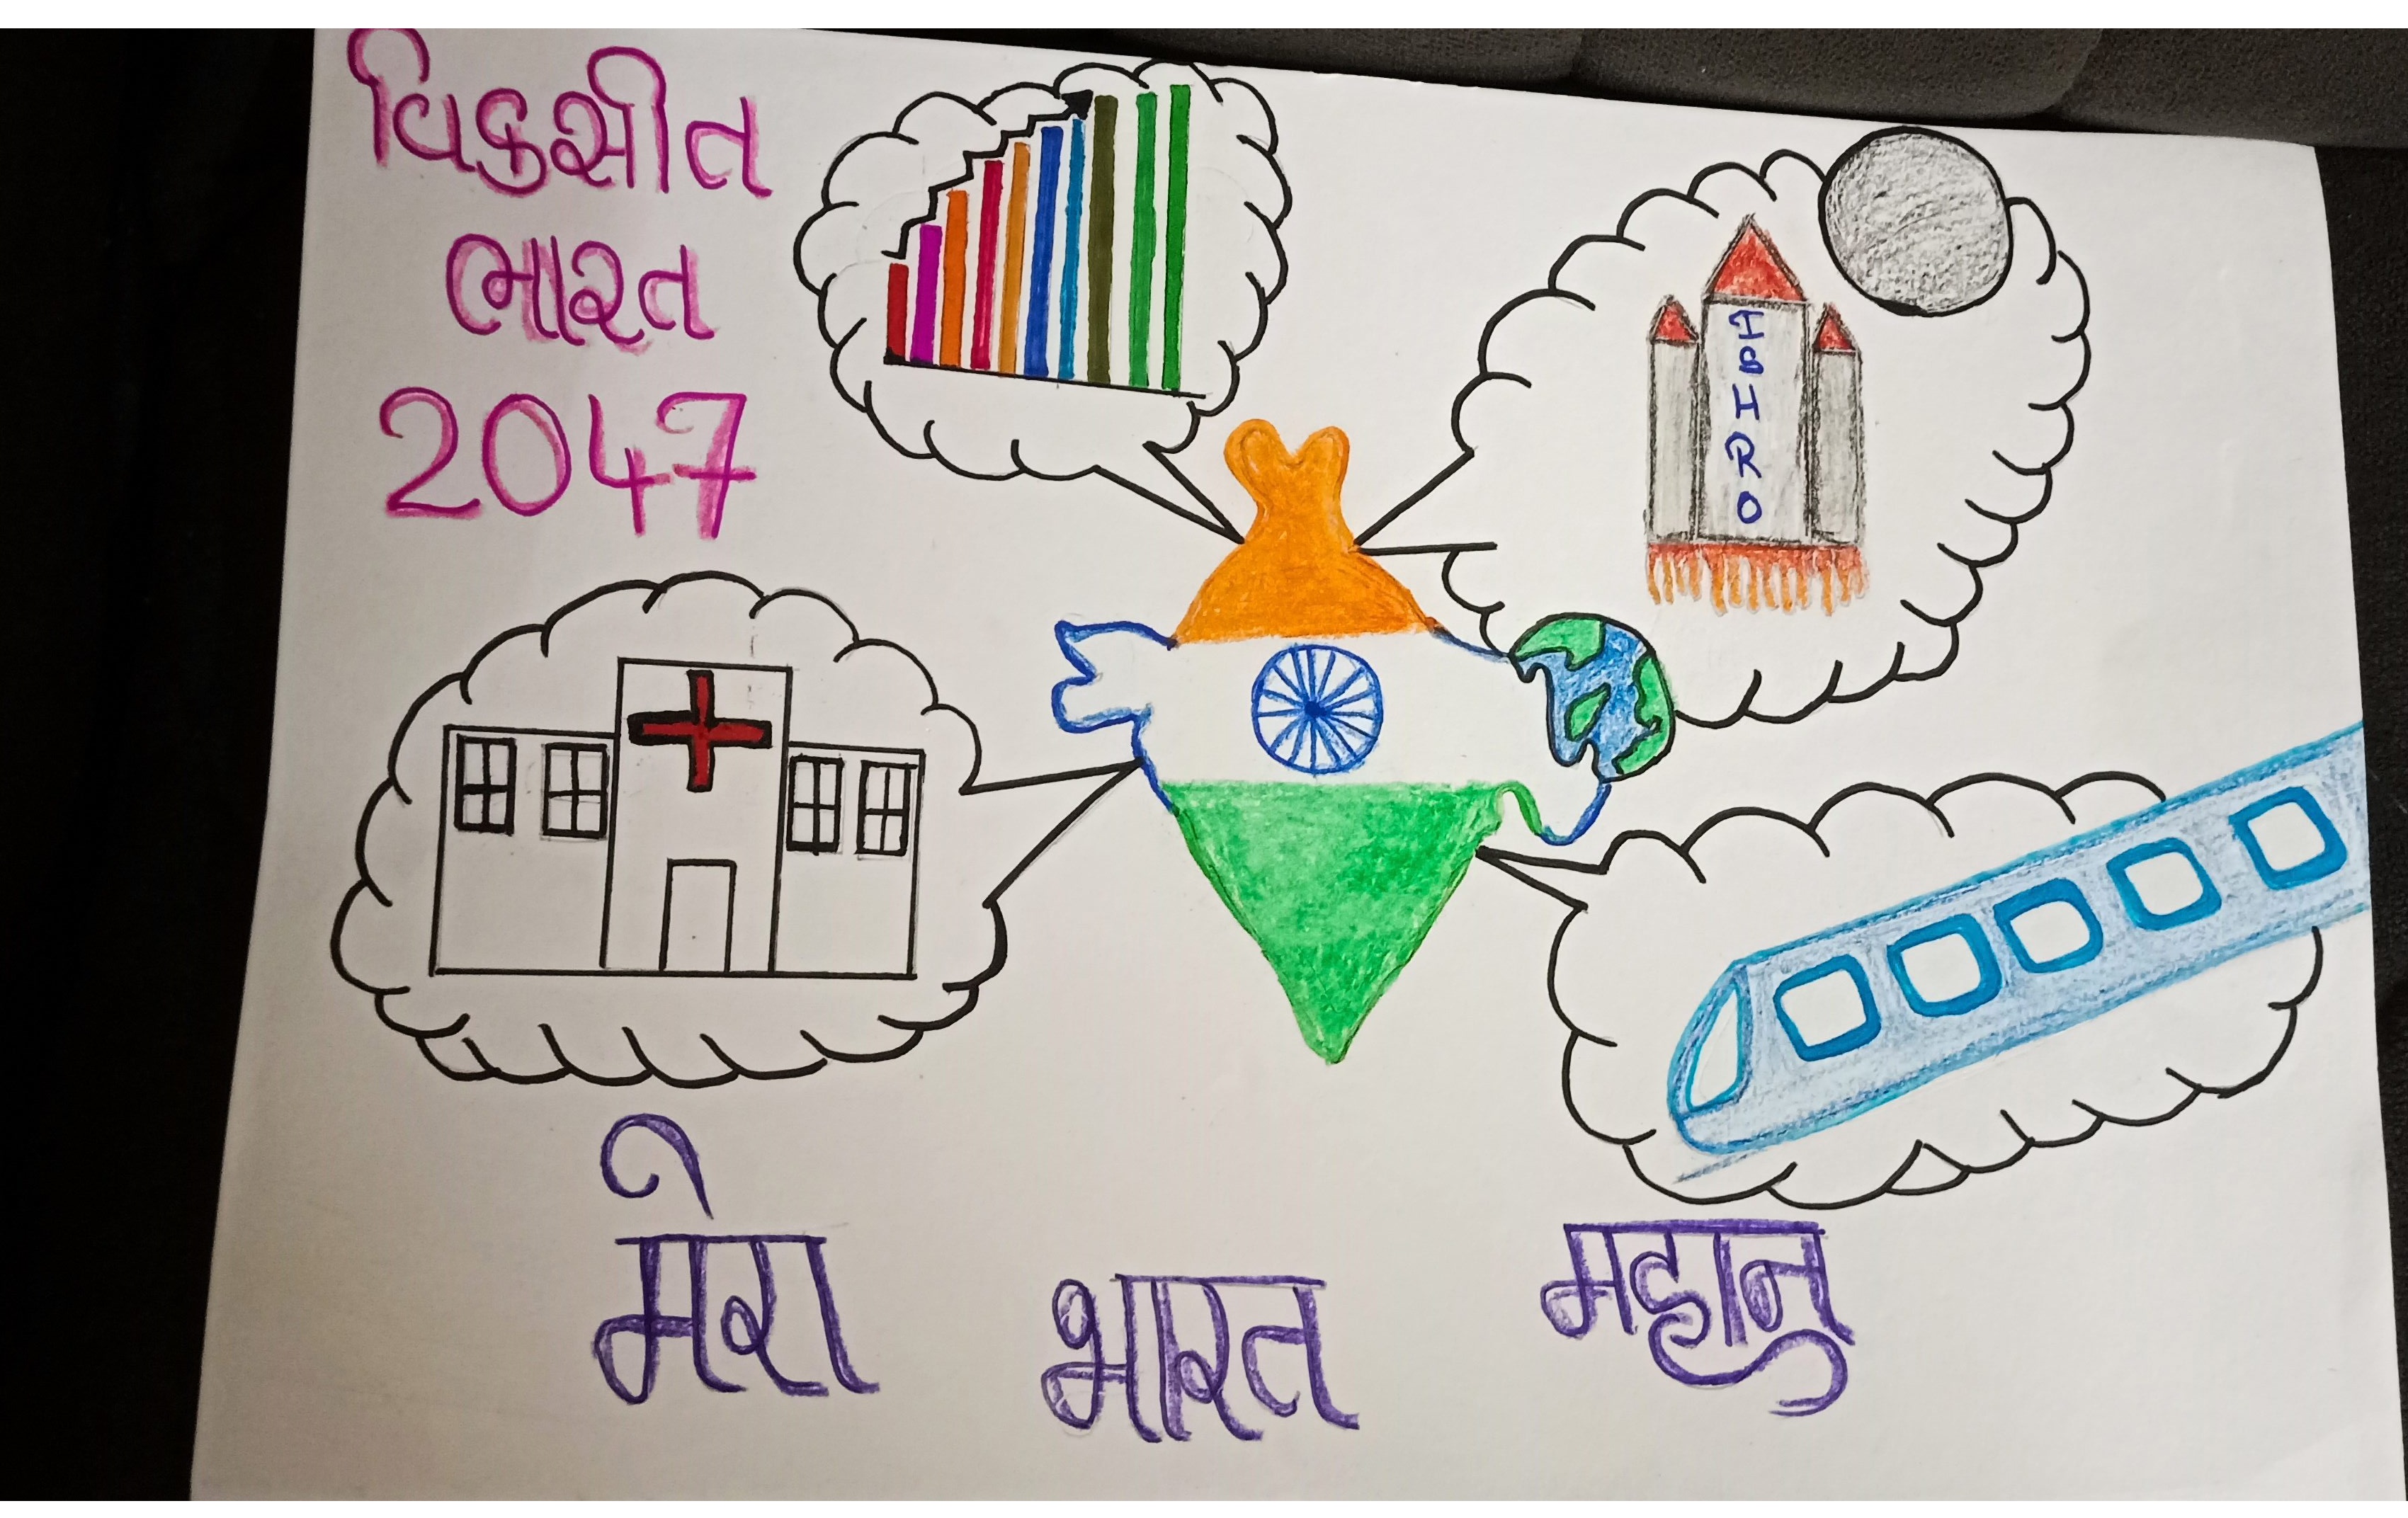 વિકસીત
ભારત
2047
मेरा भारत महान्